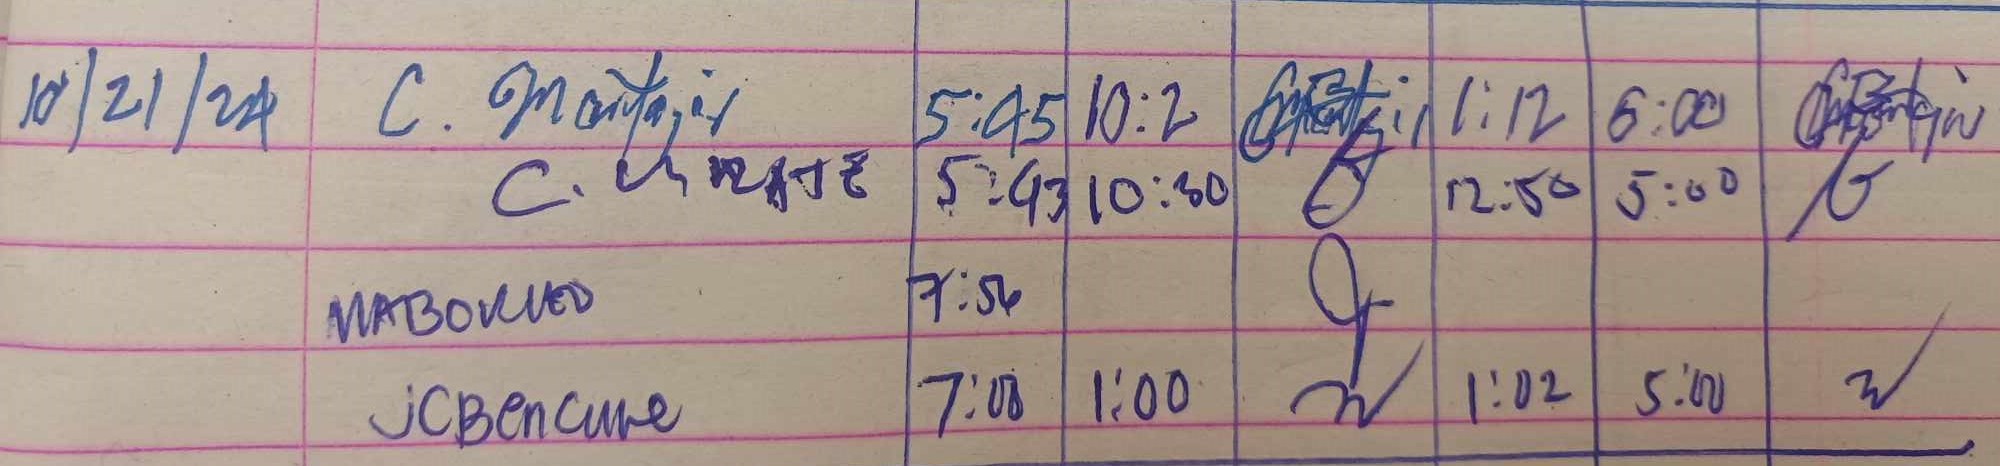 10/21/24 C. Mantajir 5:45 10:2 1:12 5:00
C. 5:43 10:30 12:50 5:00
MABORNEO 7:54
JCBencure 7:08 1:00 1:02 5:00